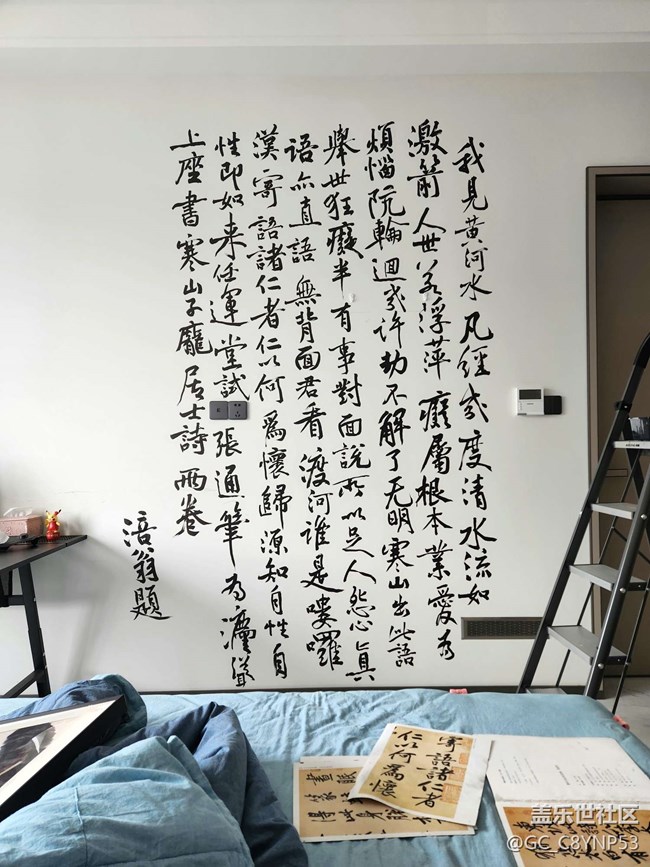 我見黃河水凡經幾度清水流如
激箭人世若浮萍癡屬根本業愛為
煩惱阬輪迴幾許劫不解了无明寒山出此語
舉世狂癡半有事對面說所以足人怨心真
語亦直語無背面君看渡河誰是嘍囉
漢寄語諸仁者仁以何為懷歸源知自性自
性即如来任運堂試張通筆為灋聳
上座書寒山子龐居士詩兩卷
涪翁題
寄語諸仁者
仁以何為懷
盖乐世社区
@GC_C8YNP53